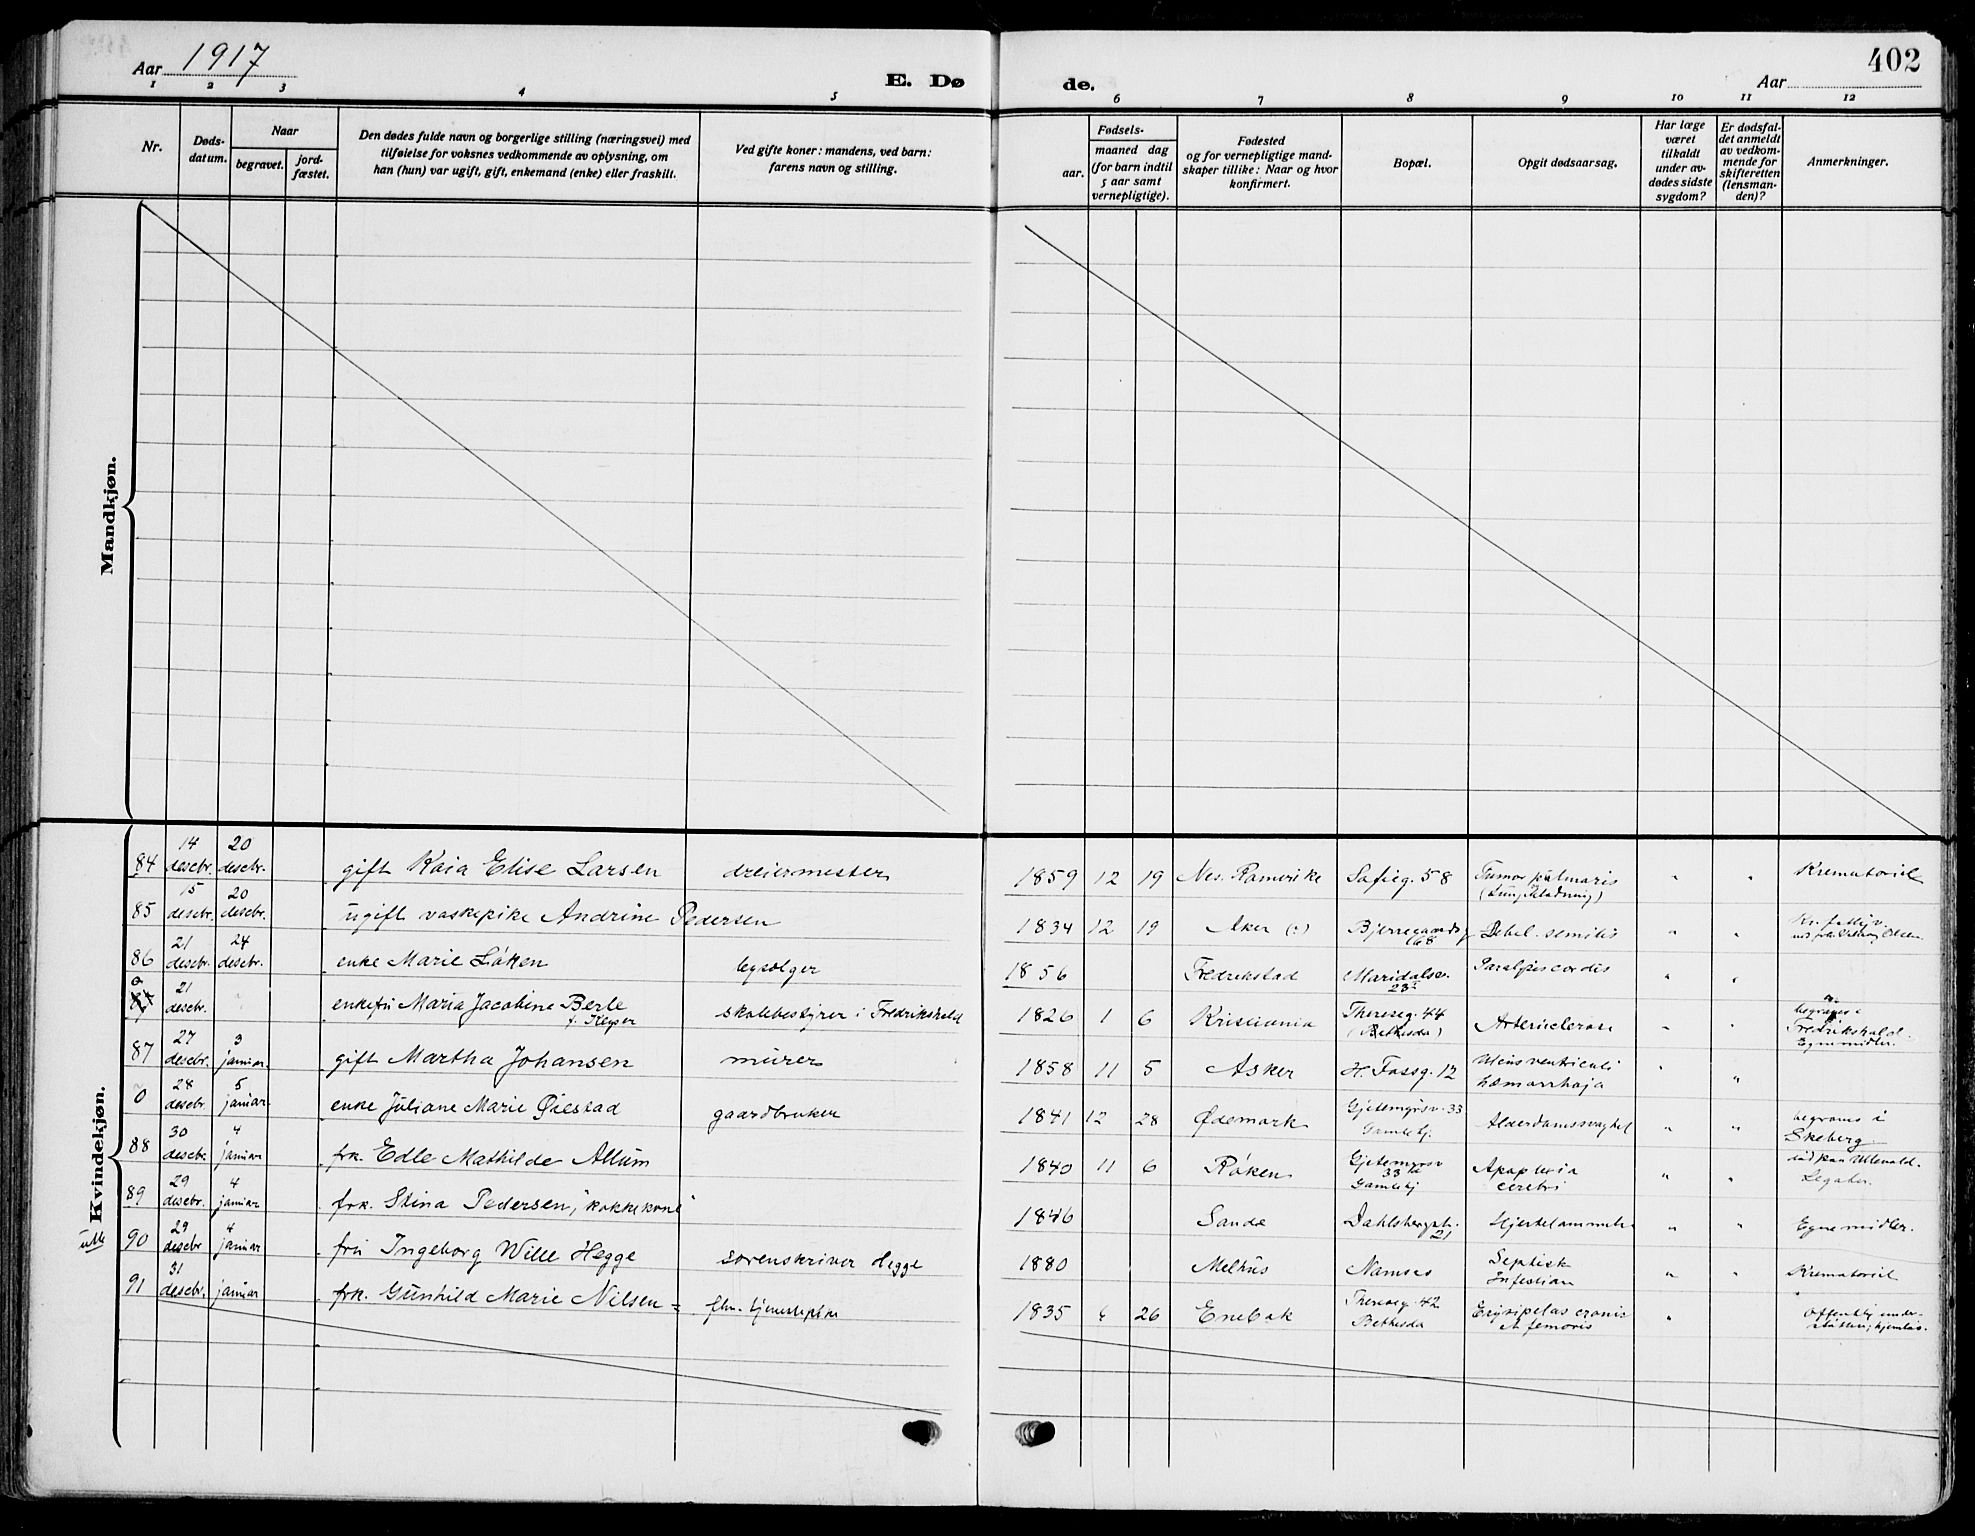 Aar 1917
E. Dø
de.
Aar
402
1 2 3 4 5 6 7 8 9 10 11 12
Nr.
Døds-
datum.
Naar
begravet.
jord-
fæstet.
Den dødes fulde navn og borgerlige stilling (næringsvei) med
tilføielse for voksnes vedkommende av oplysning, om
han (hun) var ugift, gift, enkemand (enke) eller fraskilt.
Ved gifte koner: mandens, ved barn:
farens navn og stilling.
Fødsels-
aar.
maaned dag
(for barn indtil
5 aar samt
vernepligtige).
Fødested
og for vernepligtige mand-
skaper tillike: Naar og hvor
konfirmert.
Bopæl.
Opgit dødsaarsag.
Har læge
været
tilkaldt
under av-
dødes sidste
sygdom?
Er dødsfal-
det anmeldt
av vedkom-
mende for
skifteretten
(lensman-
den)?
Anmerkninger.
Mandkjøn.
Kvindekjøn.
84 14 desebr. 20 desebr. gift Kaia Elise Larsen dreiermester 1859 12 19 Nes. Romerike Sofieg. 58 Tumor " " Krematoriet
85 15 desebr. 20 desebr. ugift vaskepike Andrine Pedersen 1834 12 19 Aker (?) Bjerregaardsg 68 Debil. senilis " "
86 21 desebr. 24 desebr. enke Marie Løken 1856 Fredrikstad Maridalsv. Paralysis cordis " "
21 desebr. enkefru Maria Jacobine Berle f. Keyser skolebestyrer i Fredrikshald 1826 1 6 Kristiania Thereseg. 44 (Bethesda) " " begraves i Fredrikshald. Egne midler.
87 27 desebr. 3 januar. gift Martha Johansen murer 1858 11 5 Asker H. Fossg. 12 Ulcus ventriculi " "
0 28 desebr 5 januar. enke Juliane Marie Øiestad gaardbruker 1841 12 28 Ødemark 33 Gamlehj. Alderdomssvaghet " " begraves i Skeberg
88 30 desebr. 4 januar frk. Edle Mathilde Allum 1840 11 6 Røken Gamlehj Apoplexia cerebri " "
89 29 desebr. 4 januar frk. Stina Pedersen, kokkekone 1846 Sande Dahlsbergst. 21 " " Egne midler.
90 29 desebr 4 januar fru Ingeborg Wille Hegge sorenskriver Hegge 1880 Melhus Namsos Septisk Infektion " " Krematoriet
91 31 desebr. januar frk. Gunhild Marie Nilsen = fhv. tjenestepike 1835 26 Enebak Thereseg. 42 Bethesda Erysipelas femoris " "